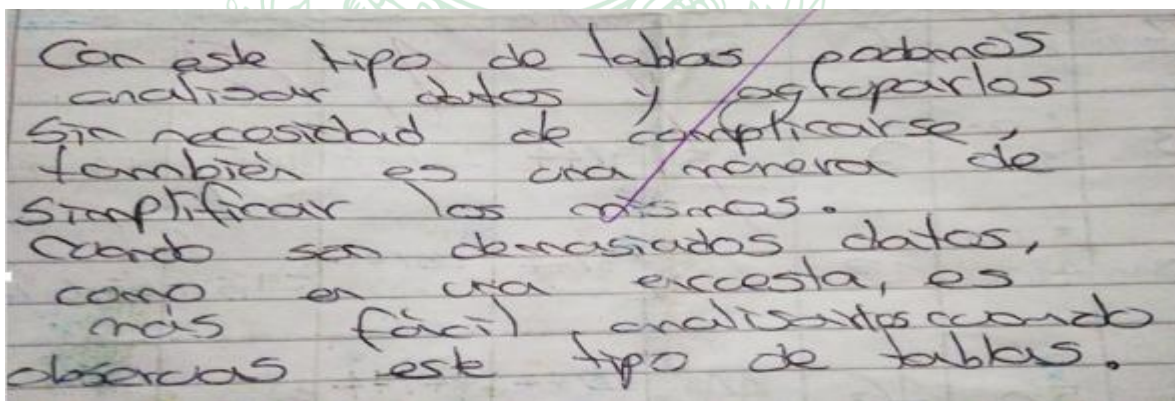 Con este tipo de tablas podemos
analisar datos y agruparlos
sin necesidad de complicarse,
también es una manera de
simplificar los mismos.
Cuando son demasiados datos,
como en una encuesta, es
más fácil analisarlos cuando
observas este tipo de tablas.